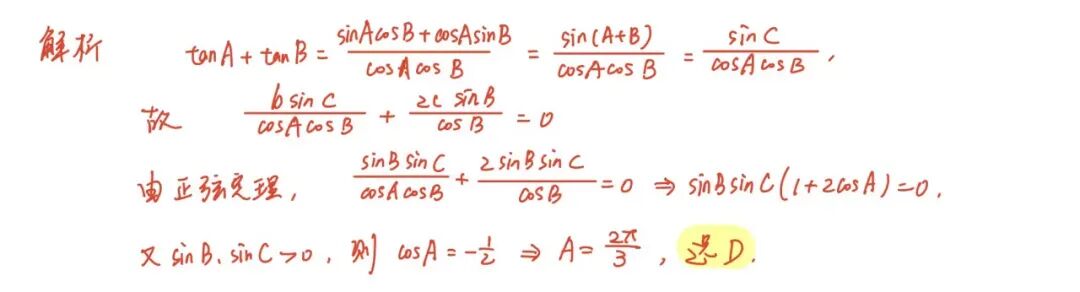 解析 tanA + tanB = (sinAcosB + cosAsinB)/(cosAcosB) = sin(A+B)/(cosAcosB) = sinC/(cosAcosB) ,
故 bsinC/(cosAcosB) + 2c sinB/cosB = 0
由正弦定理, sinBsinC/(cosAcosB) + 2sinBsinC/cosB = 0 ⇒ sinBsinC(1+2cosA)=0 .
又 sinB、sinC>0 , 则 cosA = -1/2 ⇒ A = 2π/3 , 选 D.